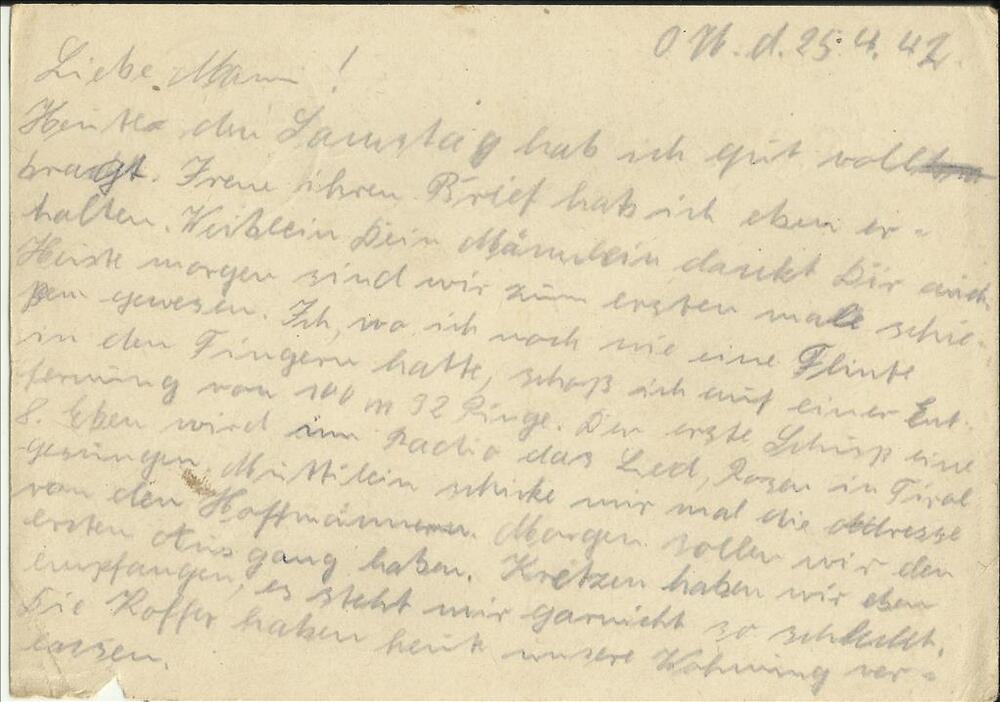 O.U. d. 25.4.42.
Liebe Mam !
Heute den Samstag hab ich gut voll
bracht. Irene ihren Brief hab ich eben er-
halten. Weiblein Dein Männlein dankt Dir auch
Heute morgen sind wir zum ersten male schie-
ßen gewesen. Ich, wo ich noch nie eine Flinte
in den Fingern hatte, schoß ich auf einer Ent-
fernung von 100 m 32 Ringe. Der erste Schuß eine
8. Eben wird im Radio das Lied, Rosen in Tirol
gesungen. Muttilein schicke mir mal die Adresse
von den Hoffmann. Morgen sollen wir den
ersten Ausgang haben. Krätzen haben wir eben
empfangen, es steht mir garnicht so schlecht.
Die Koffer haben heute unsere Wohnung ver-
lassen.